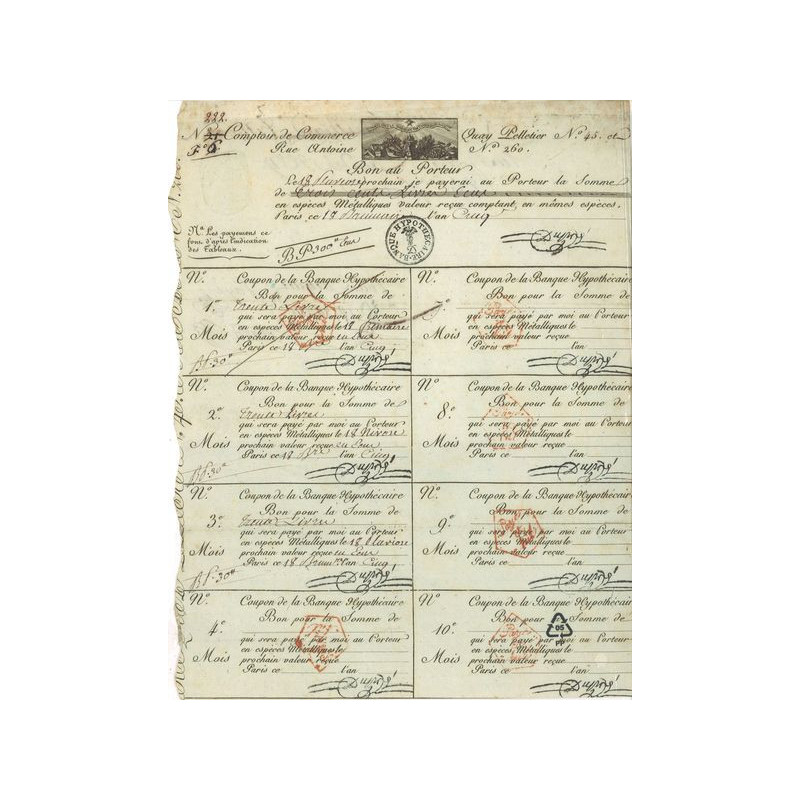 222.
N° 31 Comptoir de Commerce Quay Pelletier N.° 45. et
F.° 6 Rue Antoine N.° 260.
Bon au Porteur
Le 18 Pluviose prochain je payerai au Porteur la Somme
de Trois Cents Livres Ecus
en espèces Métalliques valeur reçue comptant, en mêmes espèces.
Paris ce 17 Brumaire l'an Cinq
N.ª Les payemens ce
font d'après l'indication
des Tableaux.
B.P. 300
BANQUE HYPOTHECAIRE
Dupré
N.° Coupon de la Banque Hypothécaire
Bon pour la Somme de
1.° Trente Livres
qui sera payé par moi au Porteur
en espèces Métalliques le 18 Frimaire
Mois prochain valeur reçue en Jour
Paris ce 18 l'an Cinq
B.P. 30
Dupré
N.° Coupon de la Banque Hypothécaire
Bon pour la Somme de
2.° Trente Livres
qui sera payé par moi au Porteur
en espèces Métalliques le 18 Nivose
Mois prochain valeur reçue en Jour
Paris ce 18 Bre l'an Cinq
B.P. 30
Dupré
N.° Coupon de la Banque Hypothécaire
Bon pour la Somme de
3.° Trente Livres
qui sera payé par moi au Porteur
en espèces Métalliques le 18 Pluviose
Mois prochain valeur reçue en Jour
Paris ce 18 Brum l'an Cinq
B.P. 30
Dupré
N.° Coupon de la Banque Hypothécaire
Bon pour la Somme de
4.°
qui sera payé par moi au Porteur
en espèces Métalliques le
Mois prochain valeur reçue
Paris ce l'an
Dupré
N.° Coupon de la Banque Hypothécair
Bon pour la Somme de
qui sera payé par moi au Porteur
en espèces Métalliques le
Mois prochain valeur reçue
Paris ce l'an
Dupré
N.° Coupon de la Banque Hypothécair
Bon pour la Somme de
8.°
qui sera payé par moi au Porteur
en espèces Métalliques le
Mois prochain valeur reçue
Paris ce l'an
Dupré
N.° Coupon de la Banque Hypothécair
Bon pour la Somme de
9.°
qui sera payé par moi au Porteur
en espèces Métalliques le
Mois prochain valeur reçue
Paris ce l'an
Dupré
N.° Coupon de la Banque Hypothécair
Bon pour la Somme de
10.° 05
qui sera payé par moi au Porteur
en espèces Métalliques le
Mois prochain valeur reçue
Paris ce l'an
Dupré